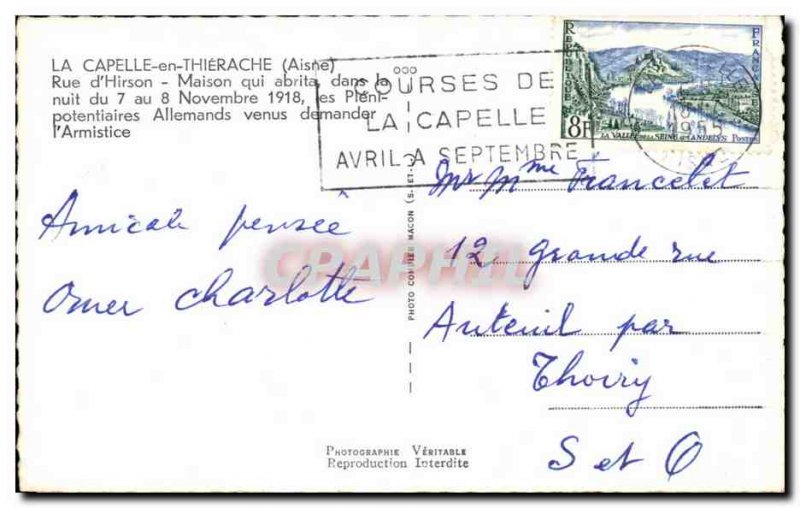 LA CAPELLE-en-THIÉRACHE (Aisne)
Rue d'Hirson - Maison qui abrita, dans la
nuit du 7 au 8 Novembre 1918, les Pléni-
potentiaires Allemands venus demander
l'Armistice
COURSES DE
LA CAPELLE
AVRIL A SEPTEMBRE
REPUBLIQUE
FRANCAISE
8F
LA VALLÉE DE LA SEINE AUX ANDELYS Postes
1955
Amicale pensée
Omer Charlotte
Mr Mme Francelet
12 grande rue
Auteuil par
Thoiry
S et O
PHOTO COMBIER MACON (S.-ET-L.)
CPAPHIL
PHOTOGRAPHIE VÉRITABLE
Reproduction Interdite